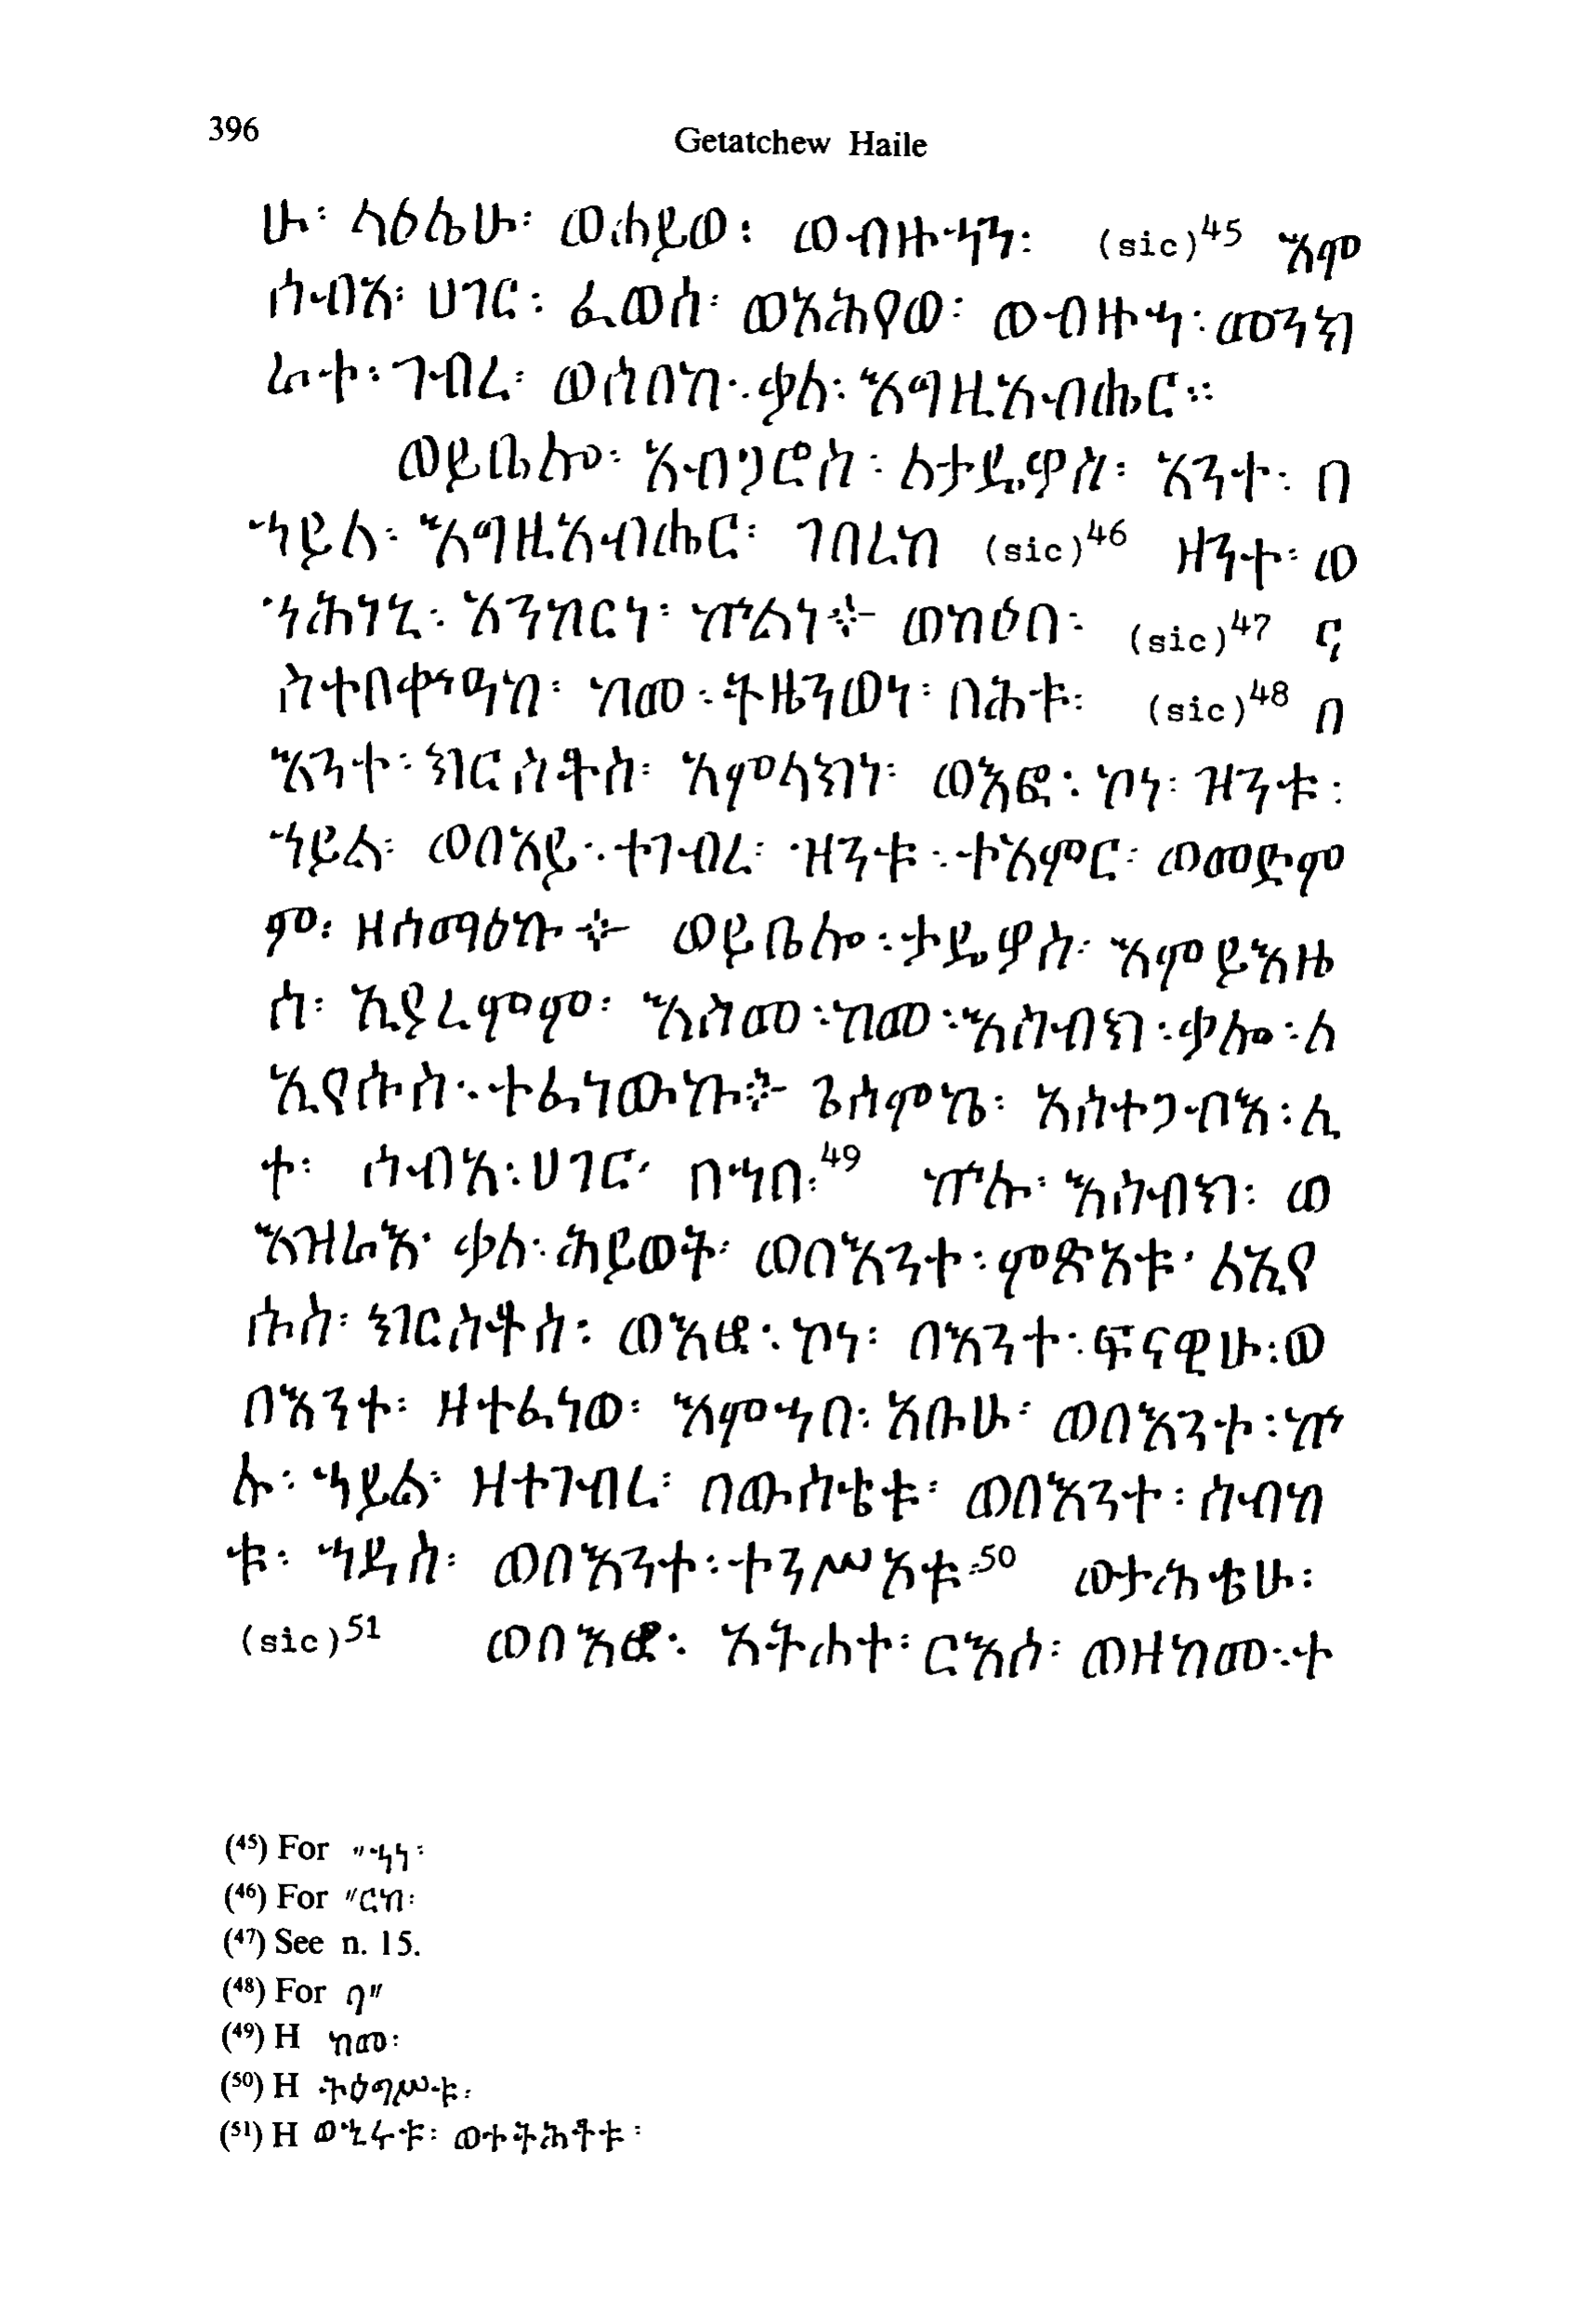 396
Getatchew Haile
ሁ፡ ላዕሌሁ፡ ወሐይወ፡ ወብዙኃን፡ (sic)45 እም
ሰብአ፡ ሀገር፡ ፈወሰ፡ ወአሕየወ፡ ወብዙኀ፡ መንክ
ራተ፡ ገብረ፡ ወሰበከ፡ ቃለ፡ እግዚአብሔር።
ወይቤሎ፡ አብጋሮስ፡ ለታዴዎስ፡ አንተ፡ በ
ኀይለ፡ እግዚአብሔር፡ ገበረከ (sic)46 ዘንተ፡ ወ
ንሕነኒ፡ አንከርነ፡ ኵልነ፨ ወከዕበ፡ (sic)47 ና
ስተበቀኍዓከ፡ ከመ፡ ትዜንወነ፡ በሕቱ፡ (sic)48 በ
እንተ፡ ክርስቶስ፡ አምላክነ፡ ወእፎ፡ ኮነ፡ ዝንቱ፡
ኀይል፡ ወበአይ፡ ተገብረ፡ ዝንቱ፡ ተአምር፡ ወመድም
ም፡ ዘሰማዕኩ፨ ወይቤሎ፡ ታዴዎስ፡ እምይእዜ
ሰ፡ ኢያረምም፡ እስመ፡ ከመ፡ እስብክ፡ ቃሎ፡ ለ
ኢየሱስ፡ ተፈነውኩ፨ ጌሰምኬ፡ አስተጋብእ፡ ሊ
ተ፡ ሰብአ፡ ሀገር፡ በኀበ፡49 ኵሉ፡ እስብክ፡ ወ
እዝራእ፡ ቃለ፡ ሕይወት፡ ወበእንተ፡ ምጽአቱ፡ ለኢየ
ሱስ፡ ክርስቶስ፡ ወእፎ፡ ኮነ፡ በእንተ፡ ፍናዊሁ፡ ወ
በእንተ፡ ዘተፈነወ፡ እምኀበ፡ አቡሁ፡ ወበእንተ፡ ኵ
ሉ፡ ኀይል፡ ዘተገብረ፡ በውስቴቱ፡ ወበእንተ፡ ስብከ
ቱ፡ ኀዳስ፡ ወበእንተ፡ ተንሥኦቱ፡50 ወታሕቴሁ፡
(sic)51 ወበእፎ፡ አትሐተ፡ ርእሶ፡ ወዘከመ፡ ተ
(45) For "ኃነ፡
(46) For "ርከ፡
(47) See n. 15.
(48) For ባ"
(49) H ከመ፡
(50) H ትዕግሥቱ፡
(51) H ወኂሩቱ፡ ወተትሕቶቱ፡